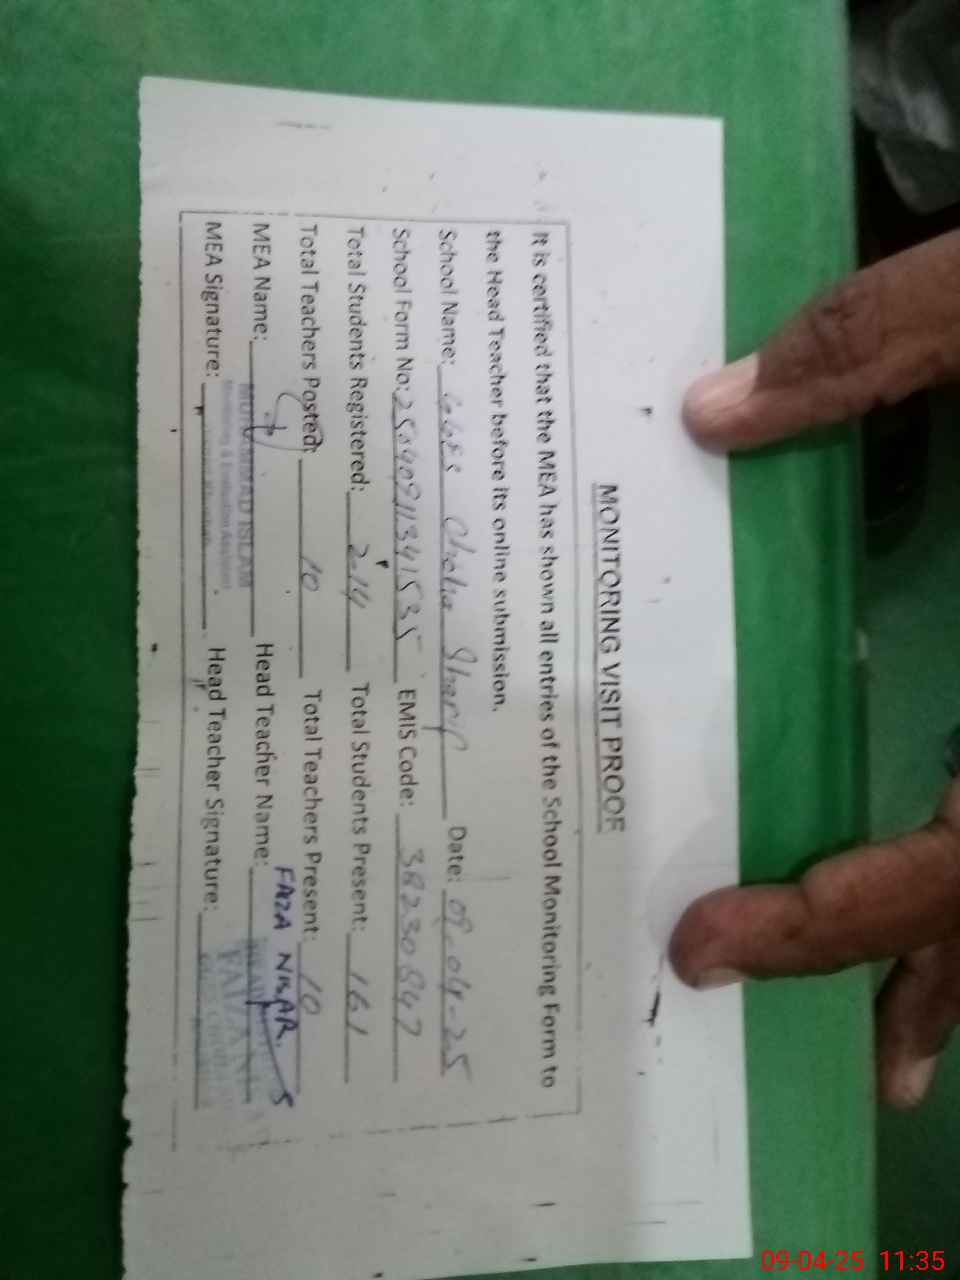 MONITORING VISIT PROOF
It is certified that the MEA has shown all entries of the School Monitoring Form to
the Head Teacher before its online submission.
School Name: GGES Chaha Sharif Date: 09-04-25
School Form No: 25040911341535 EMIS Code: 38230847
Total Students Registered: 214 Total Students Present: 161
Total Teachers Posted: 10 Total Teachers Present: 10
MEA Name: MUHAMMAD ISLAM Head Teacher Name: FAIZA NISAR
Monitoring & Evaluation Assistant
MEA Signature: Head Teacher Signature:
09-04-25 11:35